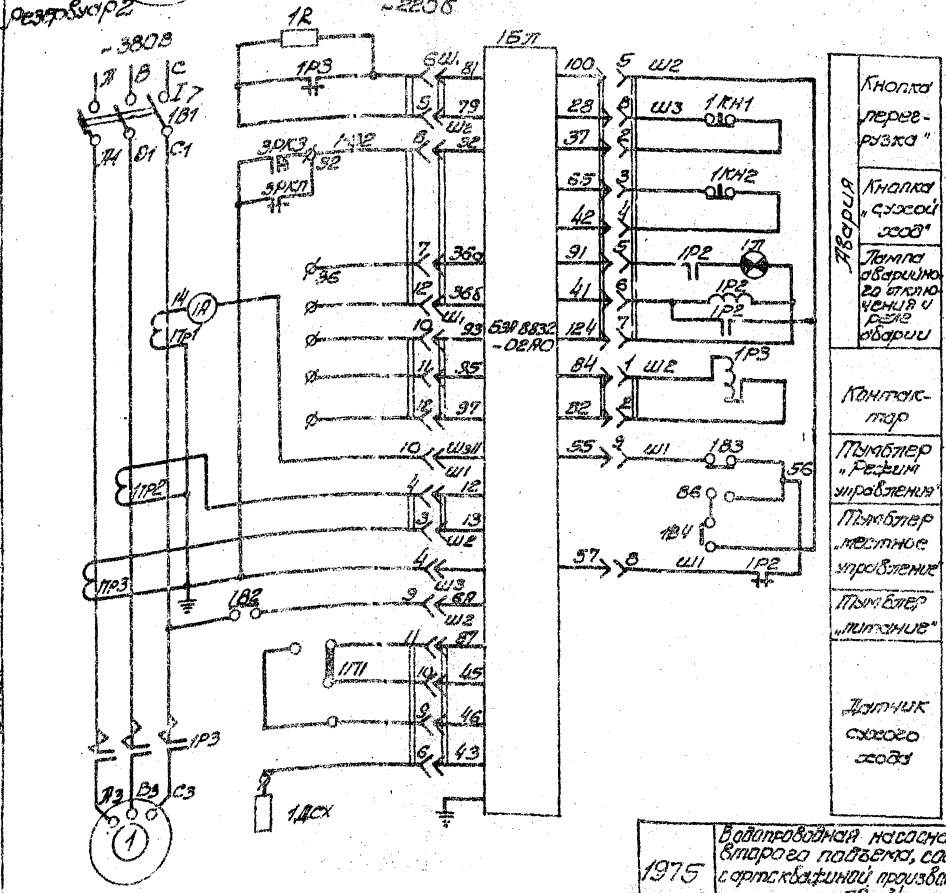 Резервуар 2
~220В
~380В
А В С
I>
1В1
А1 Б1 С1
1R
1РЗ
6 Ш1 81
5 79
Ш2
8 92
3РК3
32
3РКП
7 36а
36
12 36б
Ш1
10 93
11 95
12 97
14
1А
1ТР1
10 Ш3 11
Ш1
4 12
3 13
Ш2
1ТР2
4
Ш3
1ТР3
1В2
9 6А
Ш2
11 87
1П1
10 45
9 46
6 43
1ДСХ
1РЗ
А3 В3 С3
1
1БЛ
БЭА 8832
-02А0
100 5 Ш2
28 Ш3 1КН1
37 2
65 3 1КН2
42 4
91 5 1Р2 1Л
41 6 1Р2
1Р2
124 7
84 1 Ш2 1РЗ
82 2
55 9 Ш1 1В3
56
86
1В4
57 8 Ш1 1Р2
Авария
Кнопка
"перег-
рузка"
Кнопка
"сухой
ход"
Лампа
аварийно-
го отклю-
чения и
реле
аварии
Контак-
тор
Тумблер
"Режим
управления"
Тумблер
"местное
управление"
Тумблер
"питание"
Датчик
сухого
хода
1975
Водопроводная насосна
второго подъема, со
с артскважиной произво